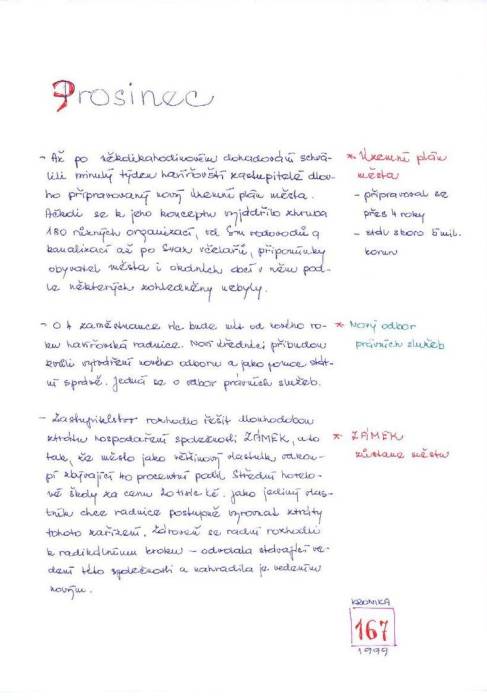 Prosinec
- Až po několikahodinovém dohadování schvá-
lili minulý týden havířovští zastupitelé dlou-
ho připravovaný nový územní plán města.
Ačkoli se k jeho konceptu vyjádřilo zhruba
180 různých organizací, od Sm vodovodů a
kanalizací až po Svaz včelařů, připomínky
obyvatel města i okolních obcí v něm pod-
le některých zohledněny nebyly.
* Územní plán
města
- připravoval se
přes 4 roky
- stál skoro 5 mil.
korun
- O 4 zaměstnance víc bude mít od nového ro-
ku havířovská radnice. Noví úředníci přibudou
kvůli vytvoření nového odboru a jako pomoc stát-
ní správě. Jedná se o odbor právních služeb.
* Nový odbor
právních služeb
- Zastupitelstvo rozhodlo řešit dlouhodobou
ztrátu hospodaření společnosti ZÁMEK, a to
tak, že město jako většinový vlastník odkou-
pí zbývající 40 procentní podíl Střední hotelo-
vé školy za cenu 20 tisíc kč. Jako jediný vlas-
tník chce radnice postupně vyrovnat ztráty
tohoto zařízení. Zároveň se radní rozhodli
k radikálnímu kroku - odvolala stávající ve-
dení této společnosti a nahradila je vedením
novým.
* ZÁMEK
zůstane městu
KRONIKA
167
1999